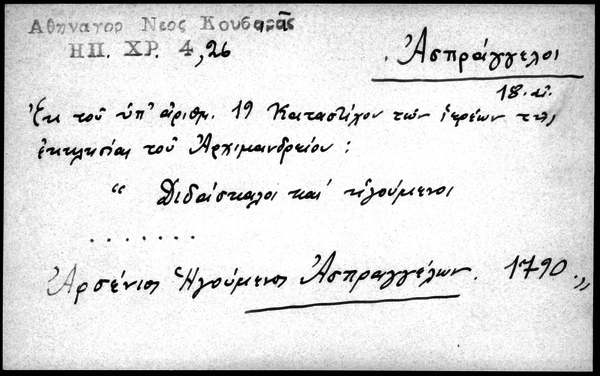 Αθηναγορ Νεος Κουβαρᾶς
ΗΠ. ΧΡ. 4,26
Ἀσπράγγελοι
18. αἰ.
Ἐκ τοῦ ὑπ' ἀριθμ. 19 Καταστίχου τῶν ἱερέων τῆς
ἐκκλησίας τοῦ Ἀρχιμανδρείου :
“ Διδάσκαλοι καὶ ἡγούμενοι
. . . . . . .
Ἀρσένιος Ἡγούμενος Ἀσπραγγέλων. 1790.„